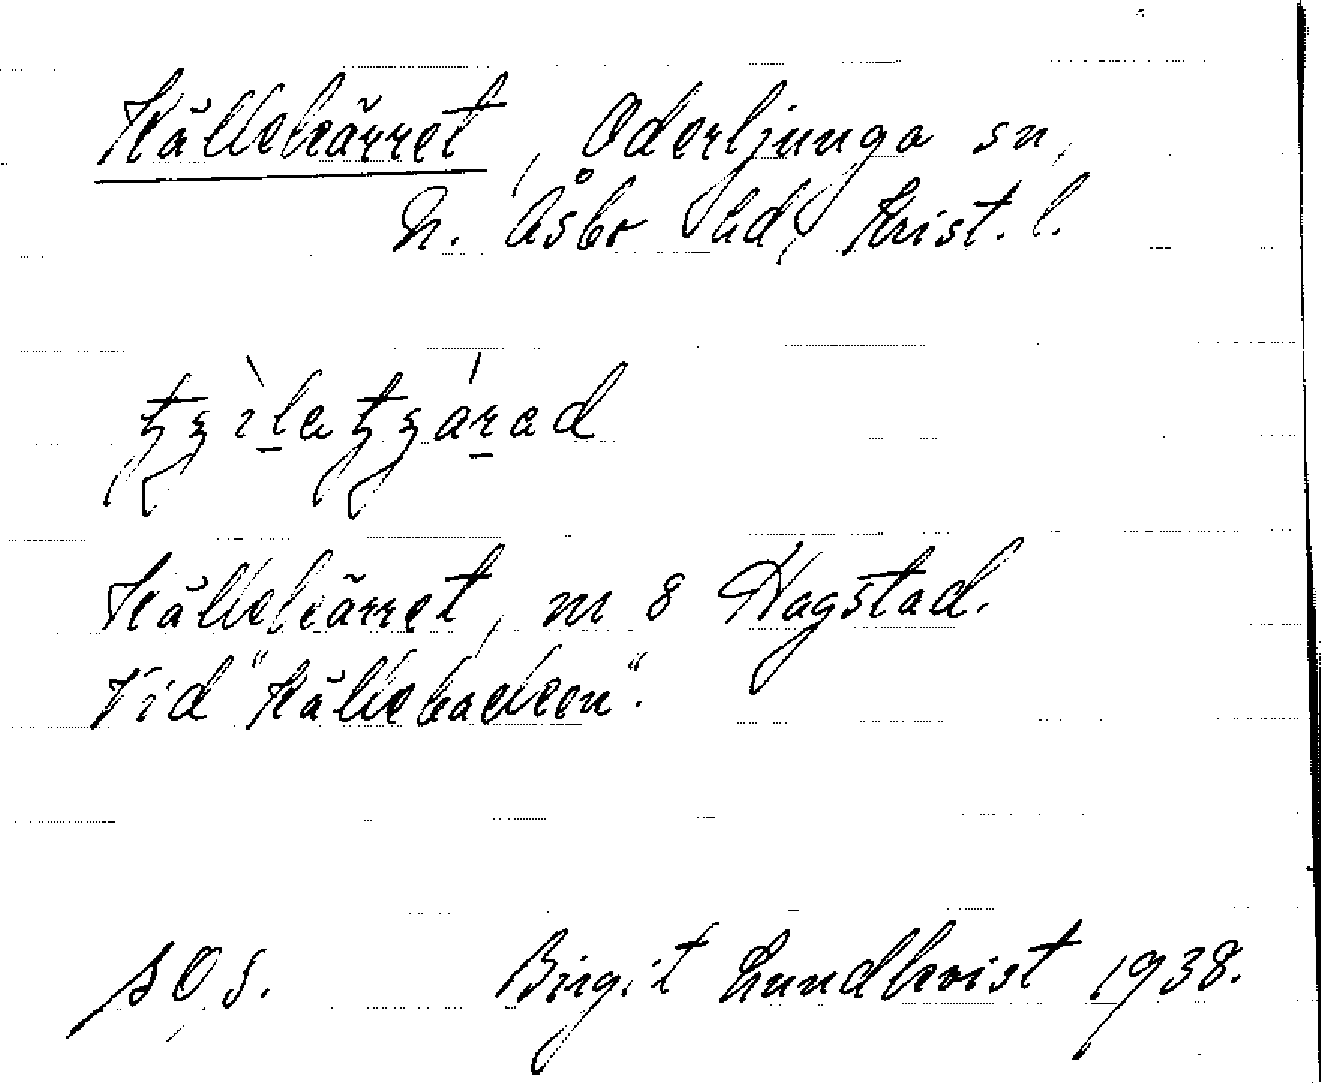 Källekärret, Oderljunga sn,
N. Åsbo hd, Krist. l.
Källekärret, m 8 Hagstad.
Vid "Källebacken".
Birgit Lundkvist 1938.